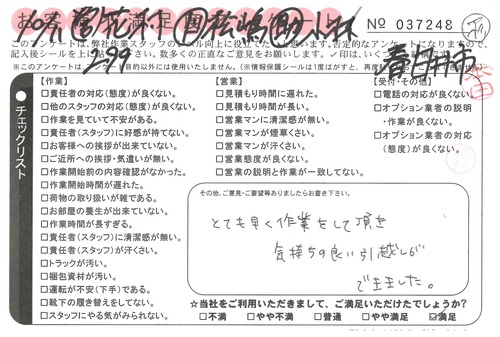 No 037248
このアンケートは、弊社作業スタッフのレベル向上に役立てたいと思います。否定的なアンケートになりますので、
記入後シールを上
※このアンケートは、アンケート目的以外には使用いたしません。
チェックリスト
【作業】
□責任者の対応(態度)が良くない。
□他のスタッフの対応(態度)が良くない。
□作業を見ていて不安がある。
□責任者(スタッフ)に好感が持てない。
□お客様への挨拶が出来ていない。
□ご近所への挨拶・気遣いが無い。
□作業開始前の内容確認がなかった。
□作業開始時間が遅れた。
□荷物の取り扱いが雑である。
□お部屋の養生が出来ていない。
□作業時間が長すぎる。
□責任者(スタッフ)に清潔感が無い。
□責任者(スタッフ)が汗くさい。
□トラックが汚い。
□梱包資材が汚い。
□運転が不安(下手)である。
□靴下の履き替えをしてない。
□スタッフにやる気がみられない。
【営業】
□見積もり時間に遅れた。
□見積もり時間が長い。
□営業マンに清潔感が無い。
□営業マンが煙草くさい。
□営業マンが汗くさい。
□営業態度が良くない。
□営業の説明と作業が一致してない。
【受付・その他】
□電話の対応が良くない。
□オプション業者の説明
・作業が良くない。
□オプション業者の対応
(態度)が良くない。
その他、ご意見・ご要望等ありましたらお書き下さい。
とても早く作業をして頂き
気持ちの良い引越しが
できました。
☆当社をご利用いただきまして、ご満足いただけたでしょうか?
□不満 □やや不満 □普通 □やや満足 ☑満足